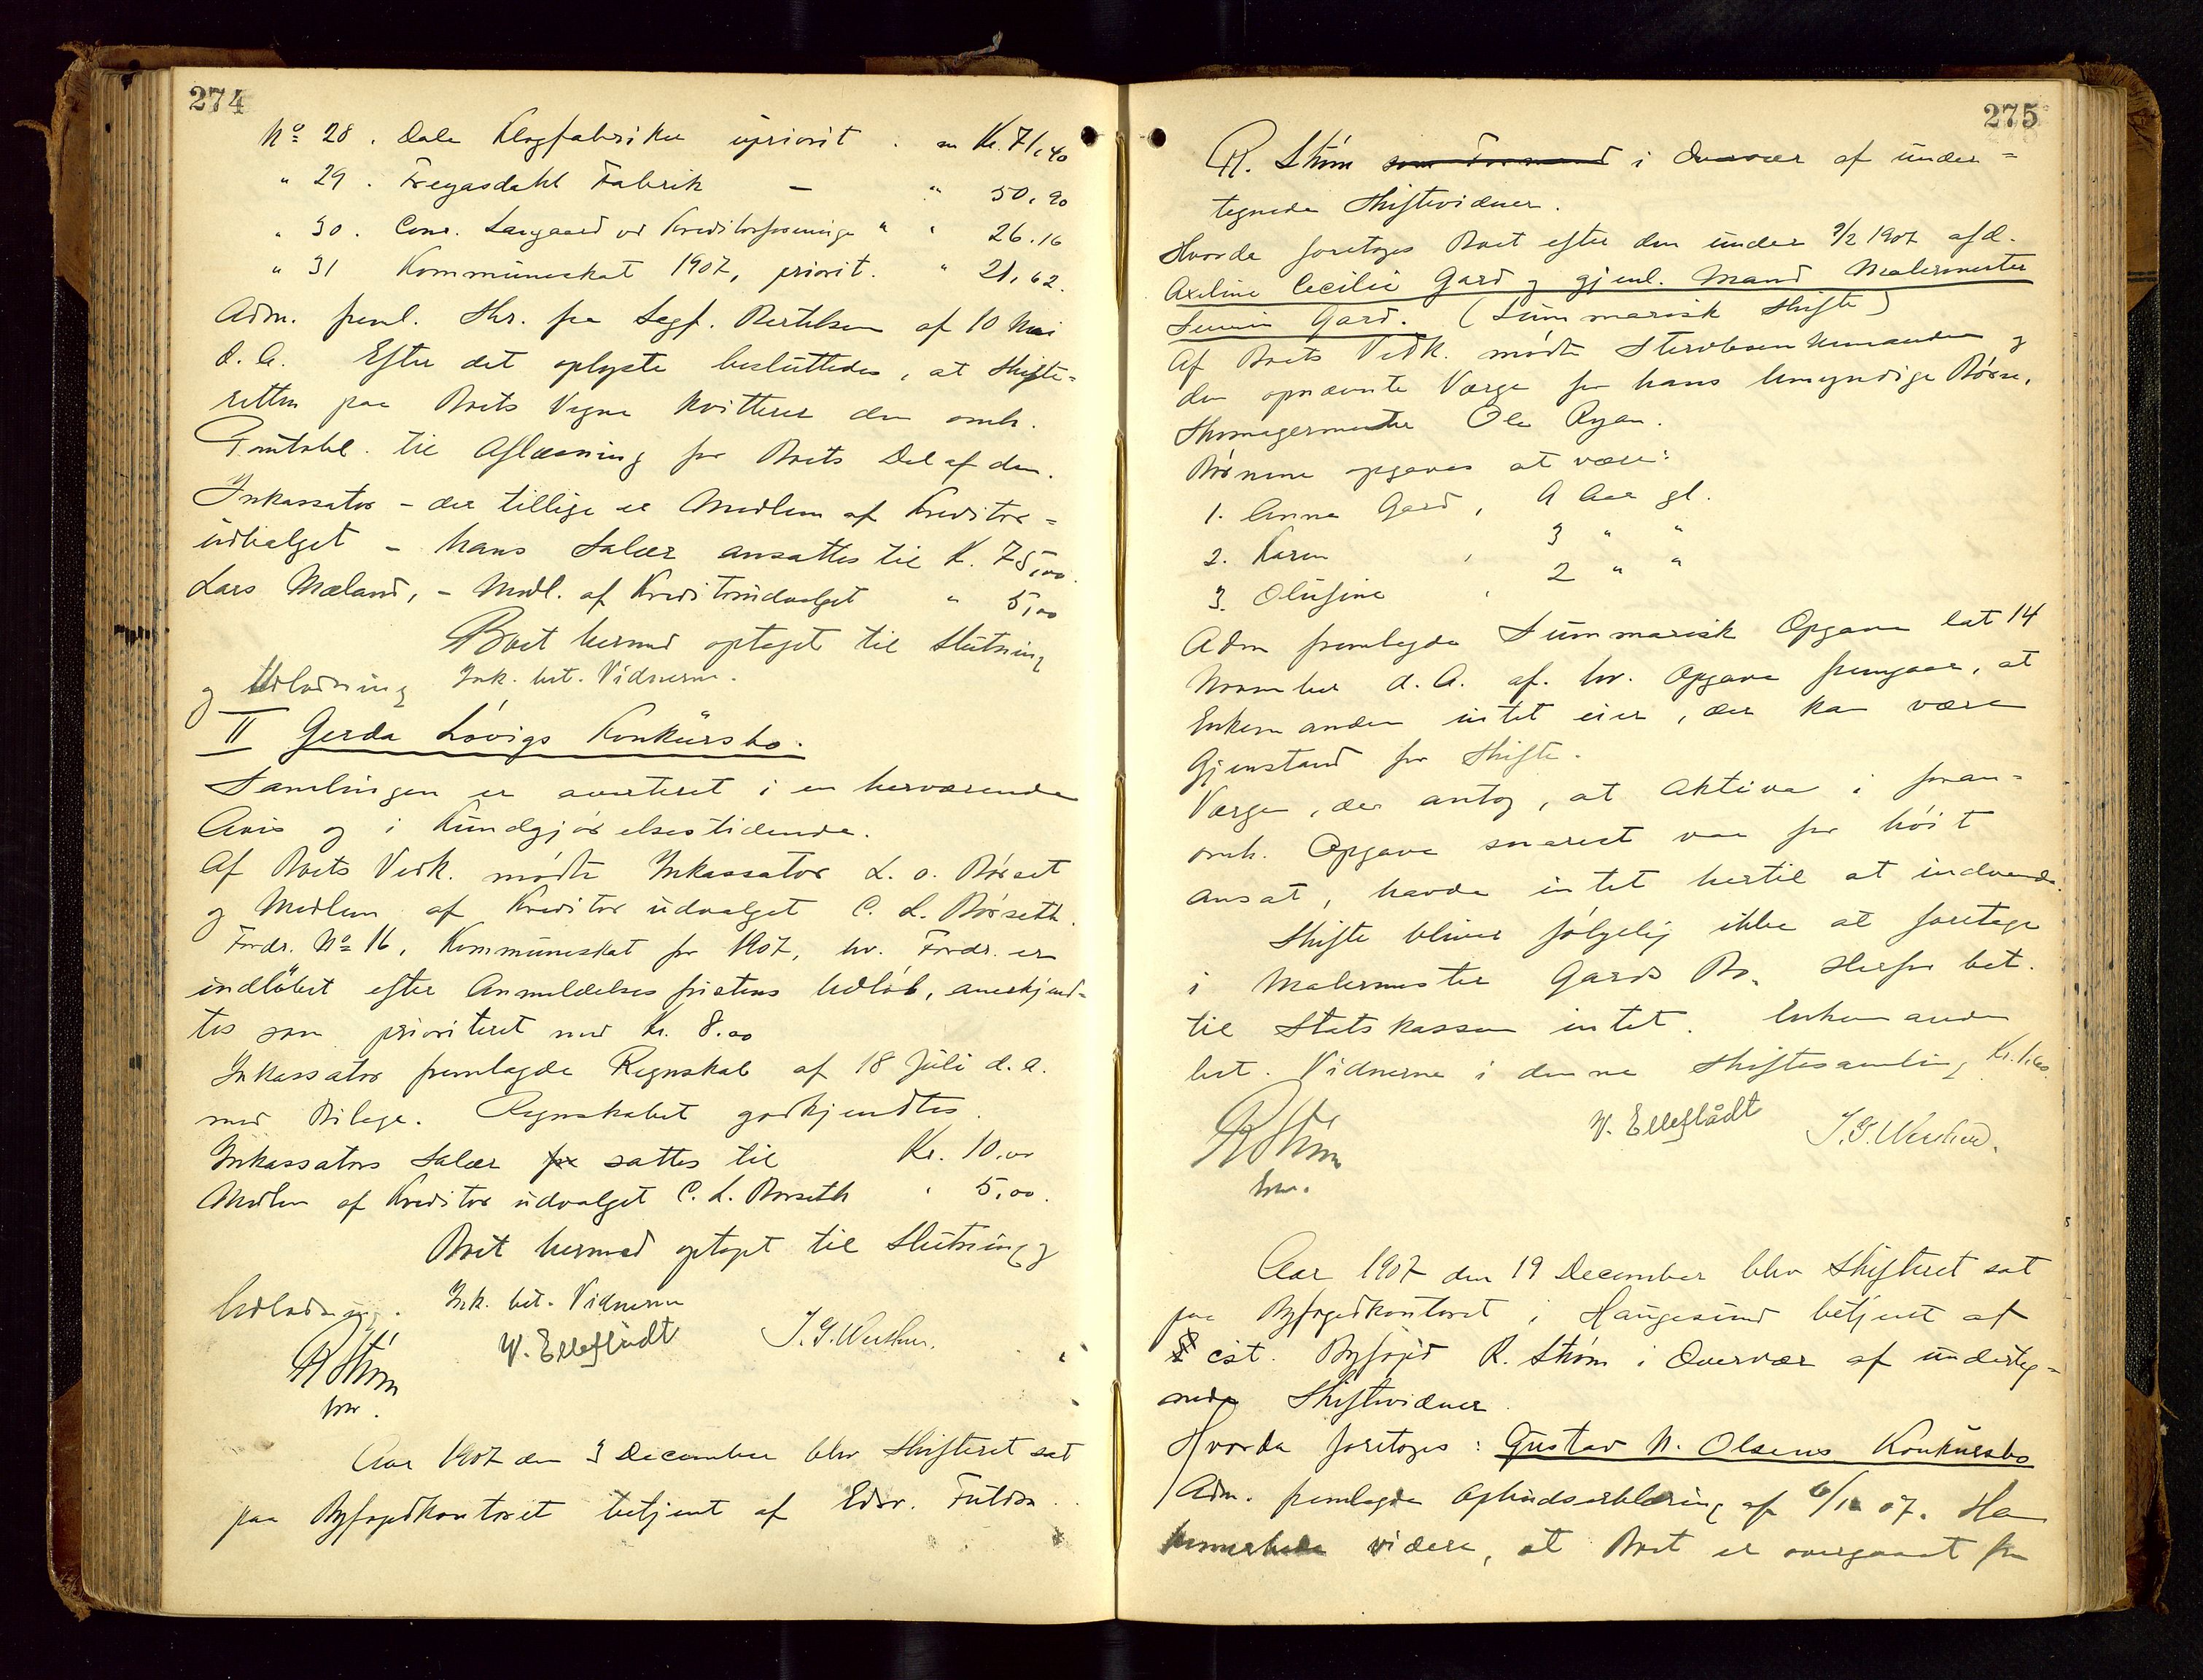 274
No 28. Dale Klægfabriker upriorit. " Kr. 71,40
" 29. Fregasdahl Fabrik — " 50,90
" 30. Conr. Langaard ved Kreditorforeninge " " 26.16
" 31 Kommuneskat 1907, priorit. " 21,62.
Adm. freml. Skr. fra Sagf. Bertelsen af 10 Mai
d. A. Efter det oplyste besluttedes, at Skifte-
retten paa Boets Vegne kvitterer den omh.
til Aflæsning for Boets Del af den.
Inkassator - der tillige er Medlem af Kreditor-
udvalget - hans Salær ansattes til K. 75,00.
Lars Mæland, - Medl. af Kreditorudvalget " 5,00
Boet hermed optaget til Slutning
og Udlodning Ink. bet. Vidnerne.
II Gerda Løvigs Konkursbo.
Samlingen er averteret i en herværende
Avis og i Kundgjørelsestidende.
Af Boets Vedk. mødte Inkassator L. O. Børset
og Medlem af Kreditorudvalget C. L. Børseth.
Fordr. No 16, Kommuneskat for 1907, hv. Fordr. er
indløbet efter Anmeldelsesfristens Udløb, anerkjend-
tes som prioriteret med Kr. 8.00
Inkassator fremlagde Regnskab af 18 Juli d. A.
med Bilage. Regnskabet godkjendtes.
Inkassators Salær sattes til Kr. 10.00
Medlem af Kreditorudvalget C. L. Børseth " 5,00.
Boet hermed optaget til Slutning og
Udlodning. Ink. bet. Vidnerne
R Strøm V. Elleflådt J. G. Werther.
krr.
Aar 1907 den 3 December blev Skifteret sat
paa Byfogedkontoret betjent af Edsv. Fuldm.
275
R. Strøm som Formand i Overvær af under-
tegnede Skiftevidner.
Hvorda foretoges Boet efter den under 9/2 1907 afd.
Axeline Cecilie Gard og gjenl. Mand Malermester
Gard. (Summarisk Skifte)
Af Boets Vedk. mødte Stervboenkemanden og
den opnævnte Værge for hans Umyndige Børn,
Skomagermester Ole Ryan.
Børnene opgaves at være:
1. Anna Gard, 9 Aar gl.
2. Karen , 3 " "
3. Olufine , 2 " "
Adm fremlagde Summarisk Opgave dat 14
November d. A. af hv. Opgave fremgaar, at
Enkemanden intet eier, der kan være
Gjenstand for Skifte.
Værgen, der antog, at Aktiva i foran-
omh. Opgave snarest var for høit
ansat, havde intet hertil at indvende.
Skifte bliver følgelig ikke at foretage
i Malermester Gards Bo. Herfor bet.
til Statskassen intet. Enkemanden
bet. Vidnerne i denne Skiftesamling Kr. 1.60
R Strøm V. Elleflådt J. G. Werther.
krr.
Aar 1907 den 19 December blev Skifteret sat
paa Byfogedkontoret i Haugesund betjent af
cst. Byfoged R. Strøm i Overvær af underteg-
nede Skiftevidner
Hvorda foretoges: Gustav N. Olsens Konkursbo
Adm. fremlagde Opbudserklæring af 6/12 07. Han
bemærkede videre, at Boet er overgaaet fra